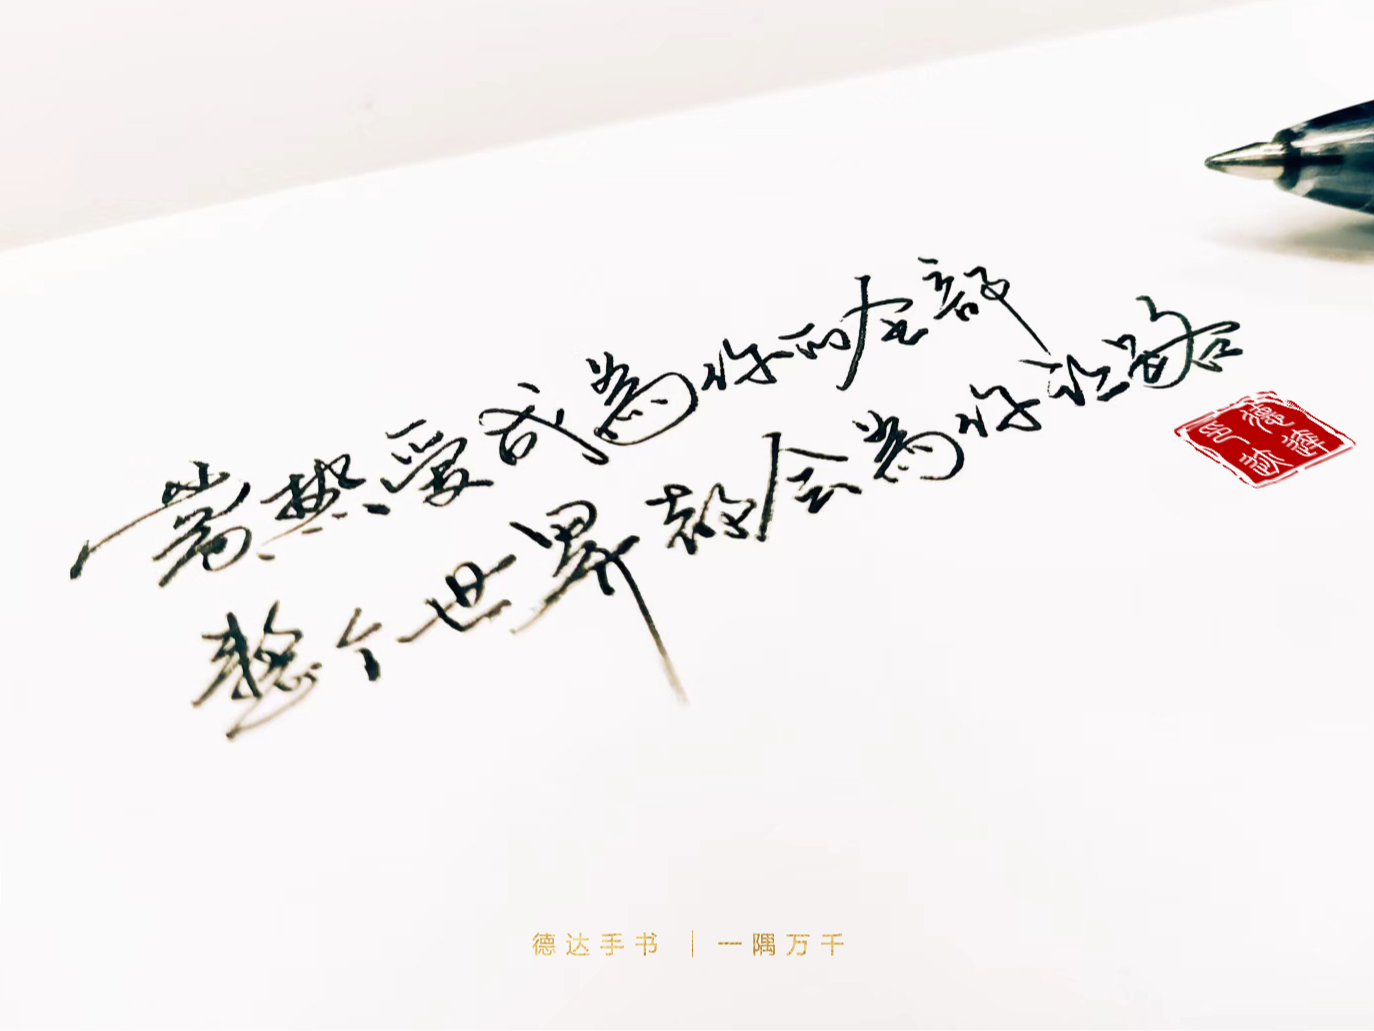 当热爱成为你的全部
整个世界都会为你让路
德达手书 | 一隅万千